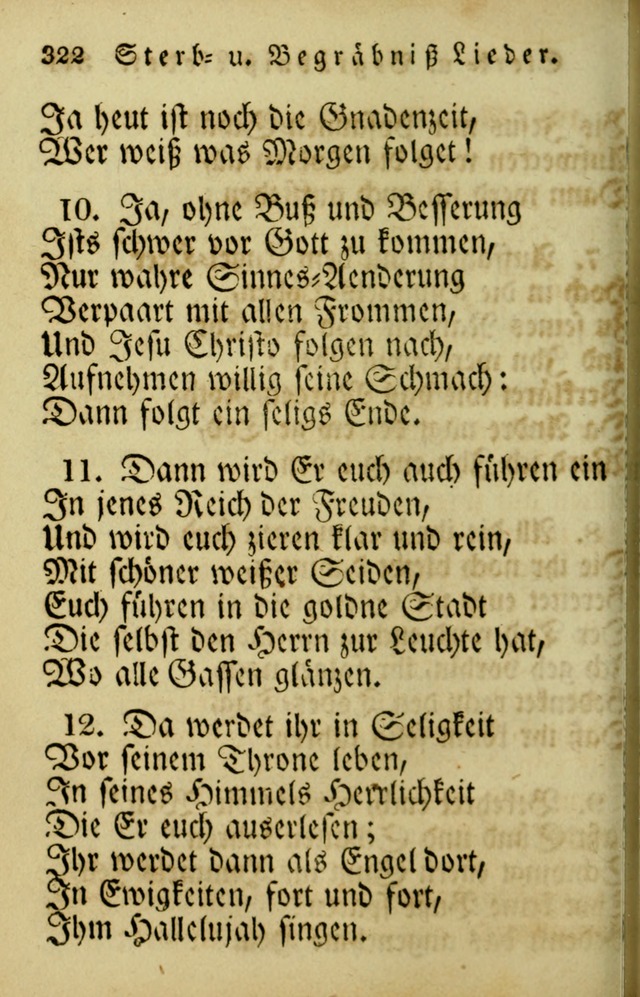 322 Sterb= u. Begräbniß Lieder.
Ja heut ist noch die Gnadenzeit,
Wer weiß was Morgen folget!
10. Ja, ohne Buß und Besserung
Ists schwer vor Gott zu kommen,
Nur wahre Sinnes=Aenderung
Verpaart mit allen Frommen,
Und Jesu Christo folgen nach,
Aufnehmen willig seine Schmach:
Dann folgt ein seligs Ende.
11. Dann wird Er euch auch führen ein
In jenes Reich der Freuden,
Und wird euch zieren klar und rein,
Mit schöner weißer Seiden,
Euch führen in die goldne Stadt
Die selbst den Herrn zur Leuchte hat,
Wo alle Gassen glänzen.
12. Da werdet ihr in Seligkeit
Vor seinem Throne leben,
In seines Himmels Herrlichkeit
Die Er euch auserlesen;
Ihr werdet dann als Engel dort,
In Ewigkeiten, fort und fort,
Ihm Hallelujah singen.